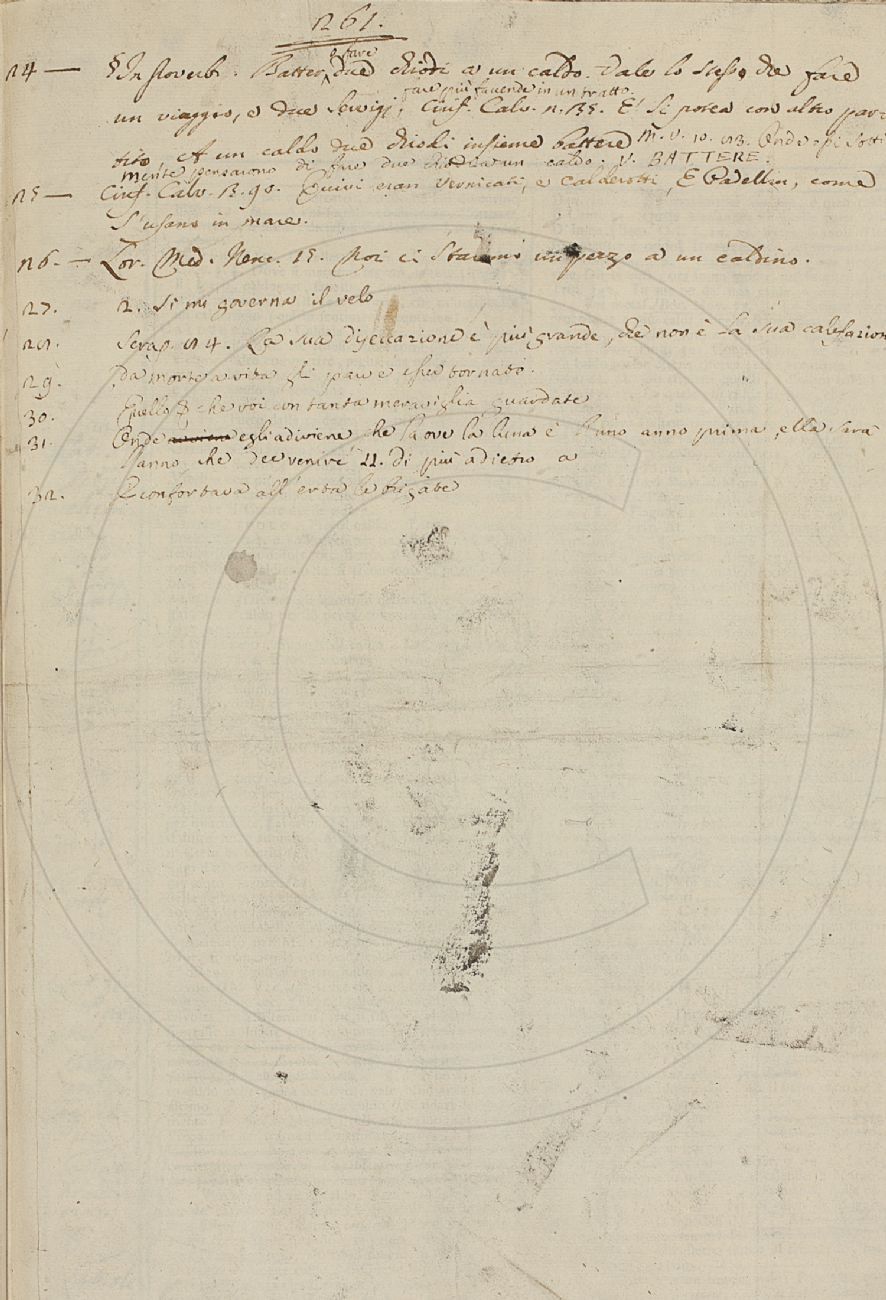 261.
24 — § In proverb. Batter, o fare due chiodi a un caldo. Vale lo stesso che fare
un viaggio, e due servigj, far più faccende in un tratto. Ciriff. Calv. 2. 135. E' si potea con altro par-
tito, A un caldo due chiodi insieme battere M. V. 10. 23. Onde si sotti
mente pensarono di fare due chiodi a un caldo. V. BATTERE.
25 — Ciriff. Calv. 3. 90. Quivi eran vernicati, e calderotti, E Padellin, come
s'usano in mare.
26. — Lor. Med. Nenc. 15. Noi ci staremo un pezzo a un caldino.
27. 2. si mi governa il velo
28. Serap. 24. La sua è più grande, che non è la sua calefazion
29. Da morte a vita gli parve esser tornato.
30. Quello che voi con tanta meraviglia guardate
31. Onde egli adiviene che la ove la luna è l'uno anno prima, ella sarà
l'anno che dee venire 11. dì più adietro a
32. E confortava all'erta le brigate